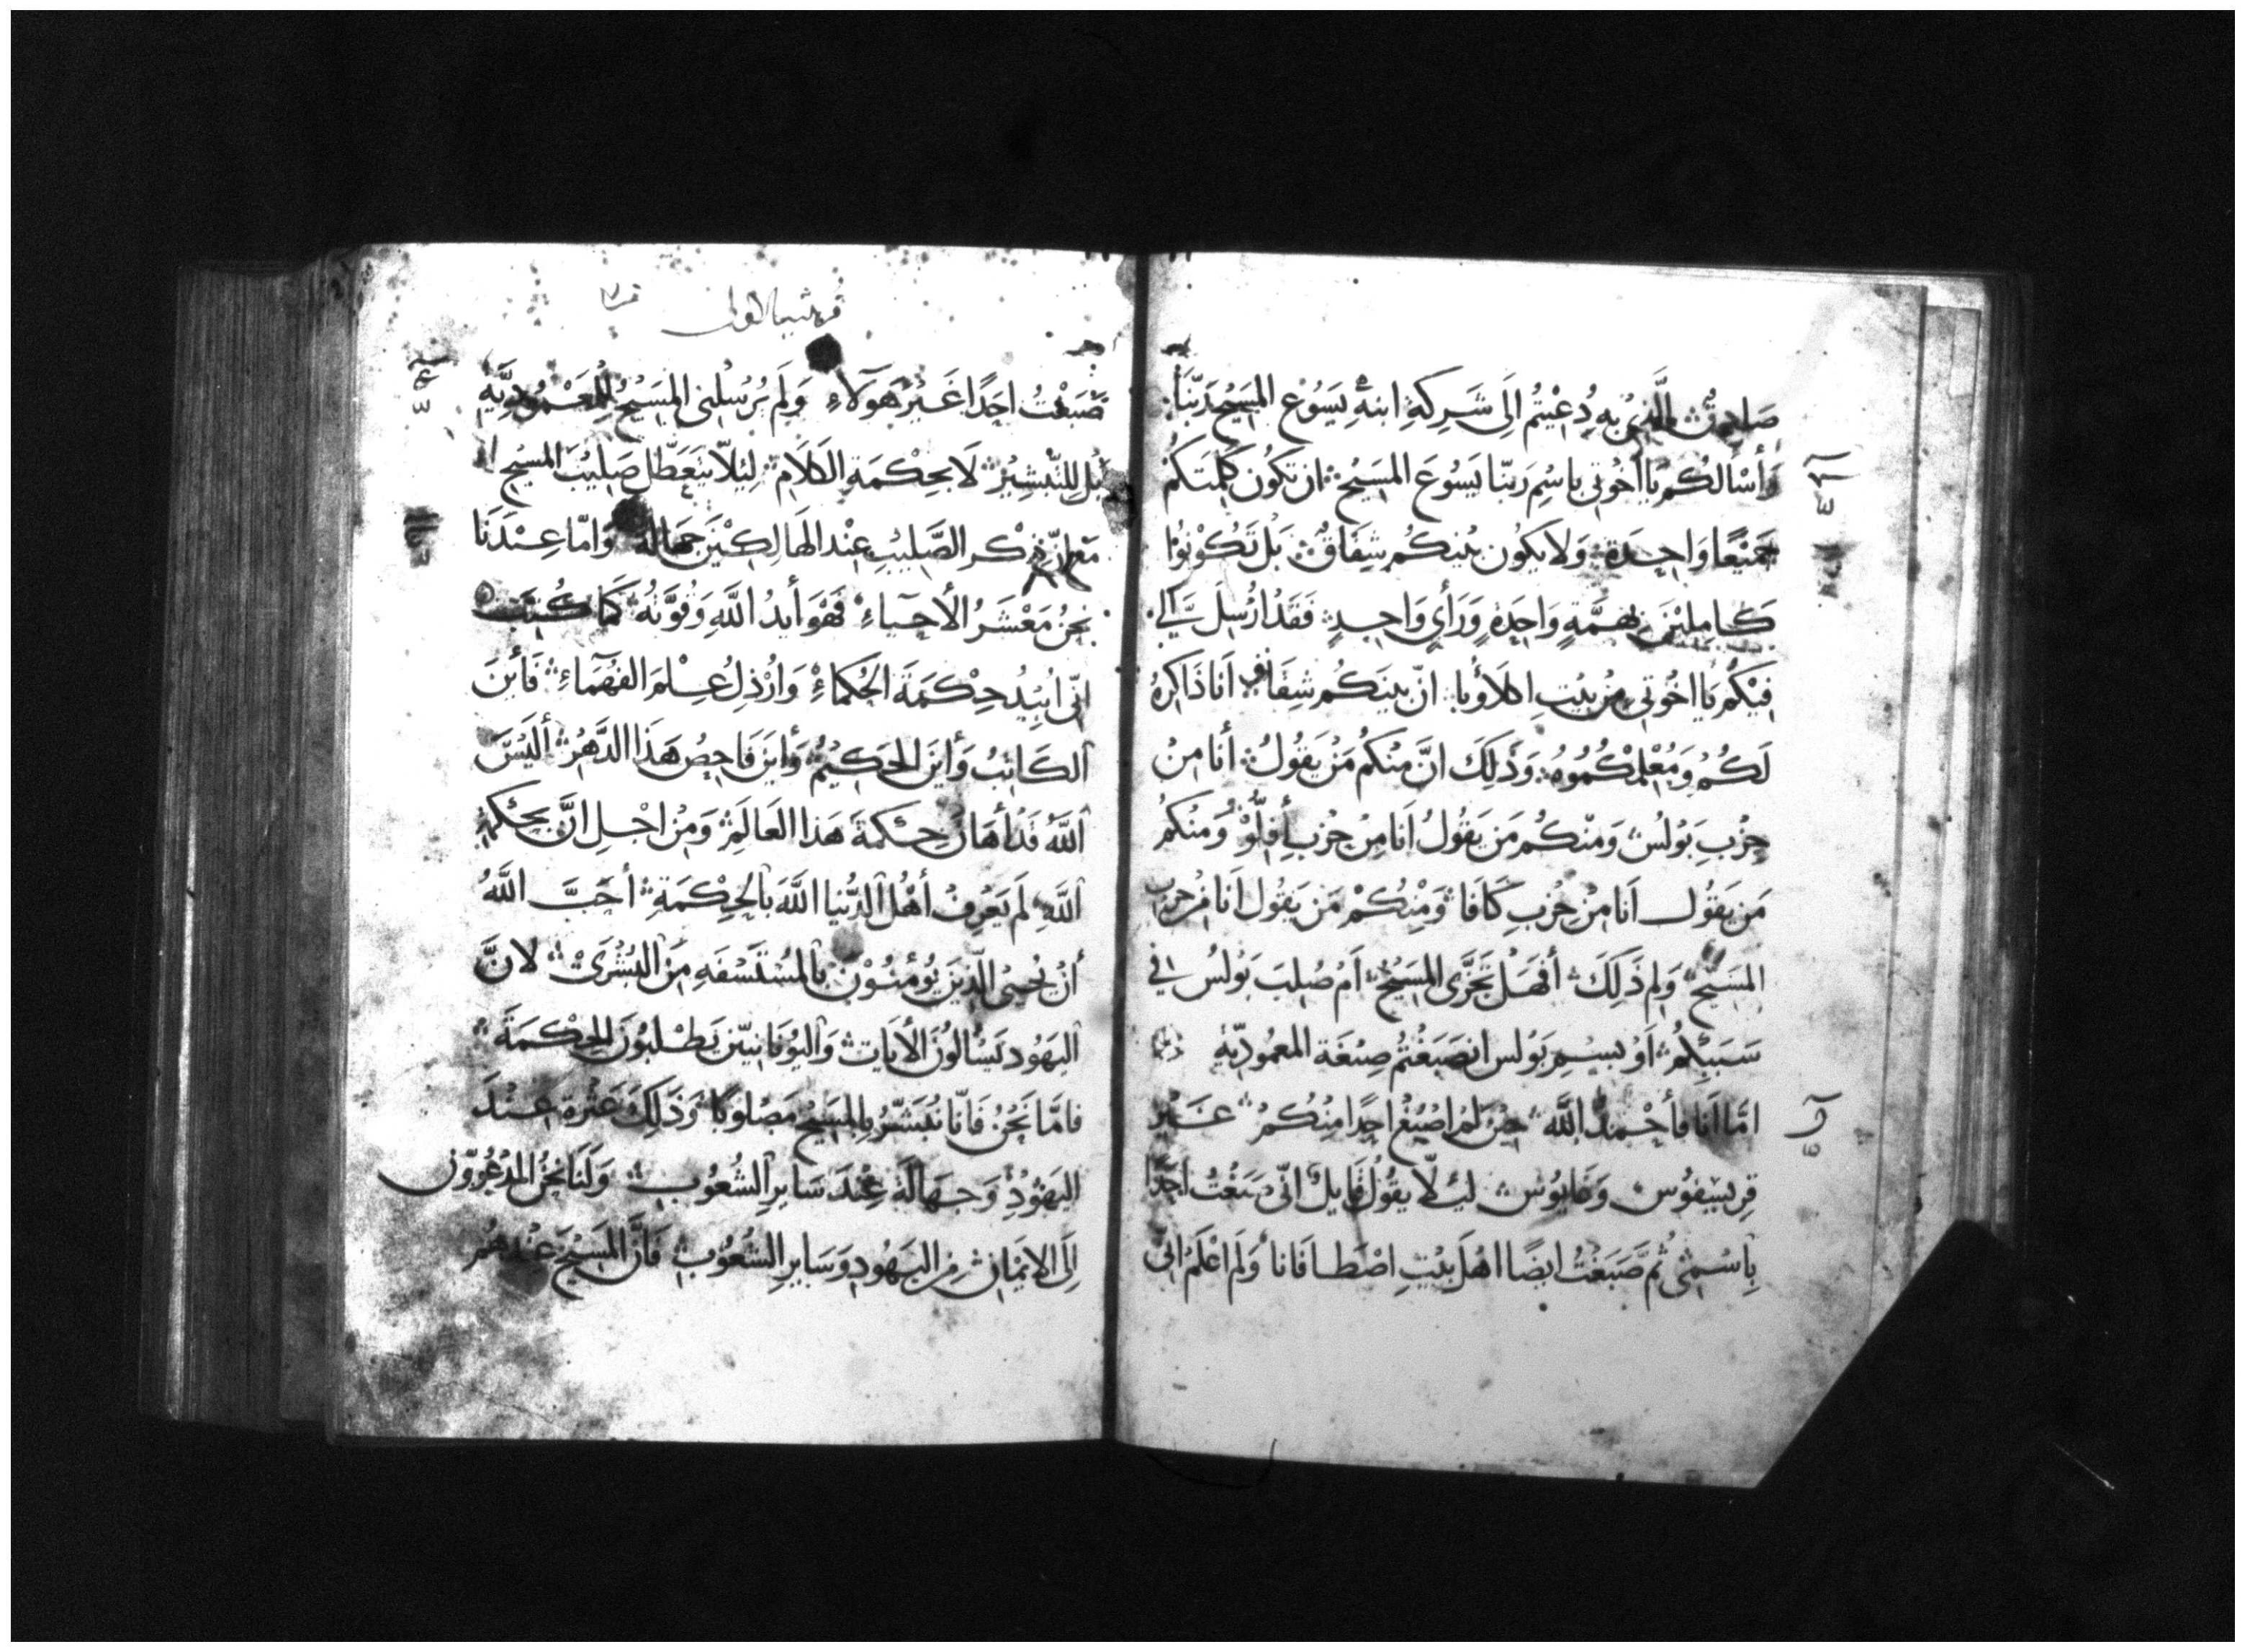 صَادِقٌ الَّذِي بِهِ دُعِيْتُم اِلَى شَرِكَةِ ابنهِ يَسُوْع المَسِيْح رَبّنَا
وَأسْألكُم يَا اخُوتي باسْمِ رَبنّا يَسُوعَ المَسِيْح ان تكُون كَلِمتَكُمْ
جَميْعًا وَاحِدَة وَلا يَكُون بَيْنكُم شِقَاقٌ بَل تَكُوْنُوْا
كَامِليْنَ بِهِمَّةٍ وَاحِدَةٍ وَرَأىٍ وَاحِدٍ فَقَدْ ارْسِلَ اِلي
فِيْكُم يَا اخُوتي مِنْ بَيْتِ اكلاؤُيا انّ بينَكُم شِقَاقٌ انَا ذَاكِرهُ
لَكُمْ وَمُعْلِمكُمُوهُ وَذَلِكَ انَّ مِنْكُم مَنْ يَقُولُ أنَا مِنْ
حِزْبِ بَوْلُس وَمنْكُم مَن يَقُولُ انَا مِن حِزْبِ أفِلُّوْ وَمنكُمْ
مَن يَقُول انَا مِنْ حِزْبِ كَافَا وَمِنْكُمْ مَن يَقُول انَا مِنْ حِزْبِ
المَسيْح وَلِم ذَلِكَ أفَهَلْ تَجَزَّى المَسِيْحُ اَمْ صُلِبَ بَولُس في
سَبَبِكُمْ اَوْ بِسِمِ بَوْلس انصَبَغْتُمْ صِبْغَة المعمُوديّةِ
امَّا انَا فَأحْمَدُ اللَّه حِيْنَ لَمْ اصْبُغْ احَدًا مِنْكُمْ غَيْر
قرِيسْفُوس وَغَايُوْس لِئلّا يقُوْلُ قَايلٌ انّي صَبَغْتُ احَدًا
بِاسْمِى ثُمَّ صَبَغْتُ ايضًا اهْلَ بَيْتِ اصْطَافَانا وَلَم اعْلَمْ انّى
قرنثيا الاولى
صَبَغْتُ احَدًا غَيْرَ هَؤلاءِ وَلَم يُرْسِلْنى المَسِيْحُ لِلْمَعْمُوديَّةِ
بَلْ لِلتّبْشِيْرِ لَا بحِكْمَةِ الكَلَام لِئلاّ يتَعَطَّل صَلِيْبُ المسِيْح
ذِكر الصَّلِيْبِ عِنْد الهَالِكِيْنَ جَهَالة وَامّا عِنْدَنَا
نحنُ مَعْشَرُ الأحيَاءِ فَهْوَ أيدُ اللَّهِ وَقُوَّتهُ كَمَا كُتِبَ
انّى ابِيْدُ حِكْمَةَ الحُكمَاءِ وَارْذِلُ عِلْمَ الفُهَماءِ فَأيْنَ
الكَاتِبُ وَأينَ الحَكيْمُ وَأينَ فَاحِصُ هَذَا الدَّهْرِ ألَيْسَ
اللَّهُ قَدْ أهَانَ حِكمَةَ هَذا العَالَمِ وَمِنْ اجْلِ انَّ بحِكمَةِ
اللَّهِ لَم يَعْرِفْ أهْلُ الدُّنيا اللَّهَ بالحِكمَةِ أحَبَّ اللَّهُ
أنْ يُحيِىَ الَّذِينَ يُؤمنُوْن بالمُسْتَسْفَهِ مِنَ البُشْرَىْ لانَّ
اليَهُودَ يَسْألوْنَ الأيَات وَاليُونَانِيّين يَطْلبُونَ الحِكْمَةَ
فَامّا نَحْنُ فَانّا نُبَشّرُ بالمَسِيْح مَصْلوبًا وَذَلِكَ عَثرة عِنْدَ
اليَهُوْدِ وَجَهَالَة عِنْدَ سَايرِ الشُّعُوبِ وَلَنَا نَحْنُ المدْعُوّوْن
اِلَى الايْمَان مِنَ اليَهُودِ وَسَايرِ الشُّعُوْبِ فَانَّ المَسِيْحَ عِنْدهُم